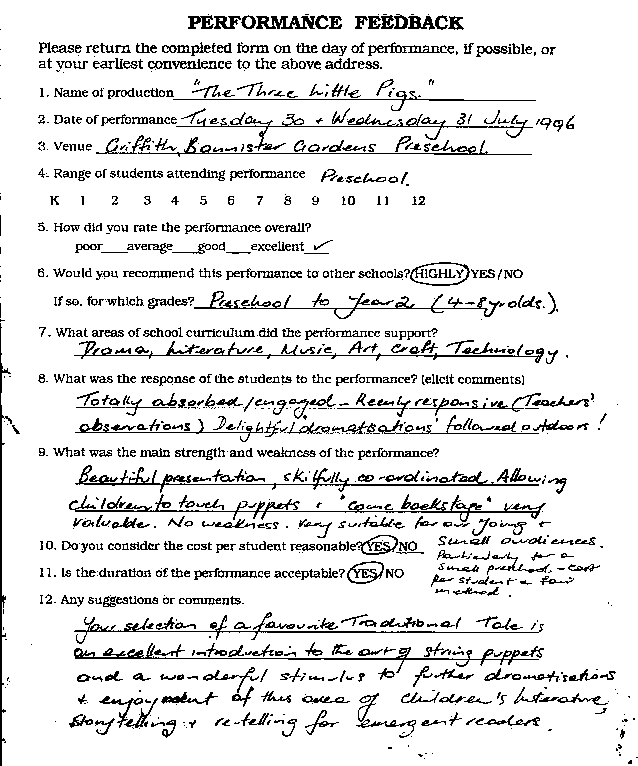 PERFORMANCE FEEDBACK
Please return the completed form on the day of performance, if possible, or
at your earliest convenience to the above address.
1. Name of production "The Three Little Pigs."
2. Date of performance Tuesday 30 + Wednesday 31 July 1996
3. Venue Griffith, Bannister Gardens Preschool
4. Range of students attending performance Preschool.
K 1 2 3 4 5 6 7 8 9 10 11 12
5. How did you rate the performance overall?
poor___average___good___excellent ✓
6. Would you recommend this performance to other schools? HIGHLY/YES/NO
If so, for which grades? Preschool to Year 2 (4-8yr olds.).
7. What areas of school curriculum did the performance support?
Drama, Literature, Music, Art, Craft, Technology.
8. What was the response of the students to the performance? (elicit comments)
Totally absorbed/engaged - Keenly responsive (Teachers'
observations) Delightful 'dramatisations' followed outdoors!
9. What was the main strength and weakness of the performance?
Beautiful presentation, skilfully co-ordinated. Allowing
children to touch puppets + "come backstage" very
valuable. No weakness. Very suitable for our young +
small audiences.
10. Do you consider the cost per student reasonable? YES/NO
Particularly for a
small preschool, - cost
per student a fair
method.
11. Is the duration of the performance acceptable? YES/NO
12. Any suggestions or comments.
Your selection of a favourite Traditional Tale is
an excellent introduction to the art of string puppets
and a wonderful stimulus to further dramatisations
+ enjoyment of this area of children's literature,
storytelling + re-telling for emergent readers.